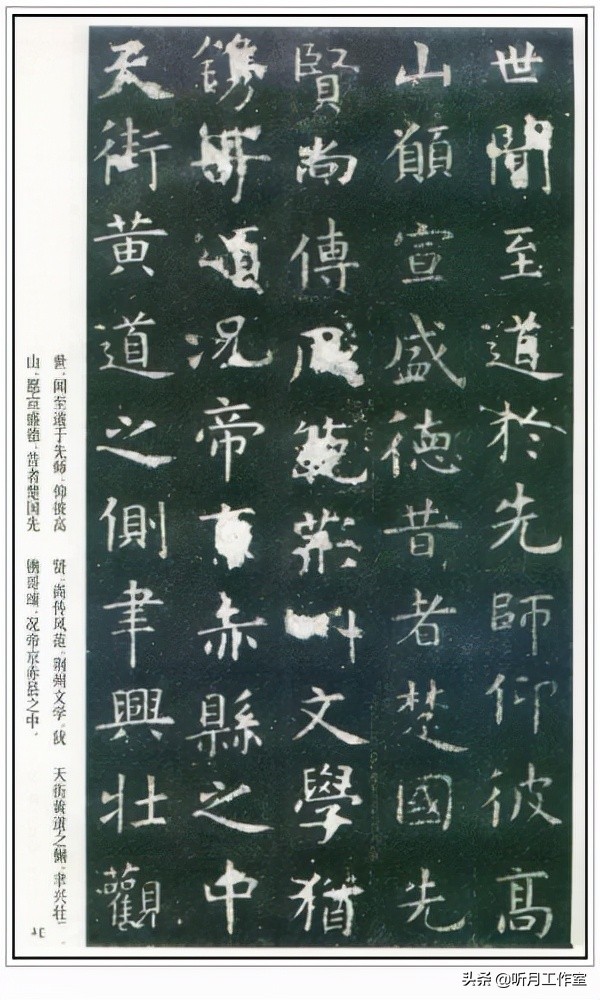 世聞至道於先師仰彼高
山願宣盛德昔者楚國先
賢尚傳風範荊州文學猶
鐫哥頌況帝京赤縣之中
天街黃道之側聿興壮觀
世，闻至道于先师，仰彼高
山，愿宣盛德，昔者楚国先
贤，尚传风范，荆州文学，犹
镌哥颂，况帝京赤县之中，
天街黄道之侧，聿兴壮
头条 @听月工作室